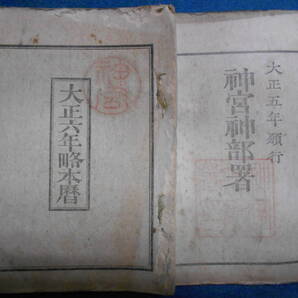 大正五年頒行
神宮神部署
大正六年略本暦